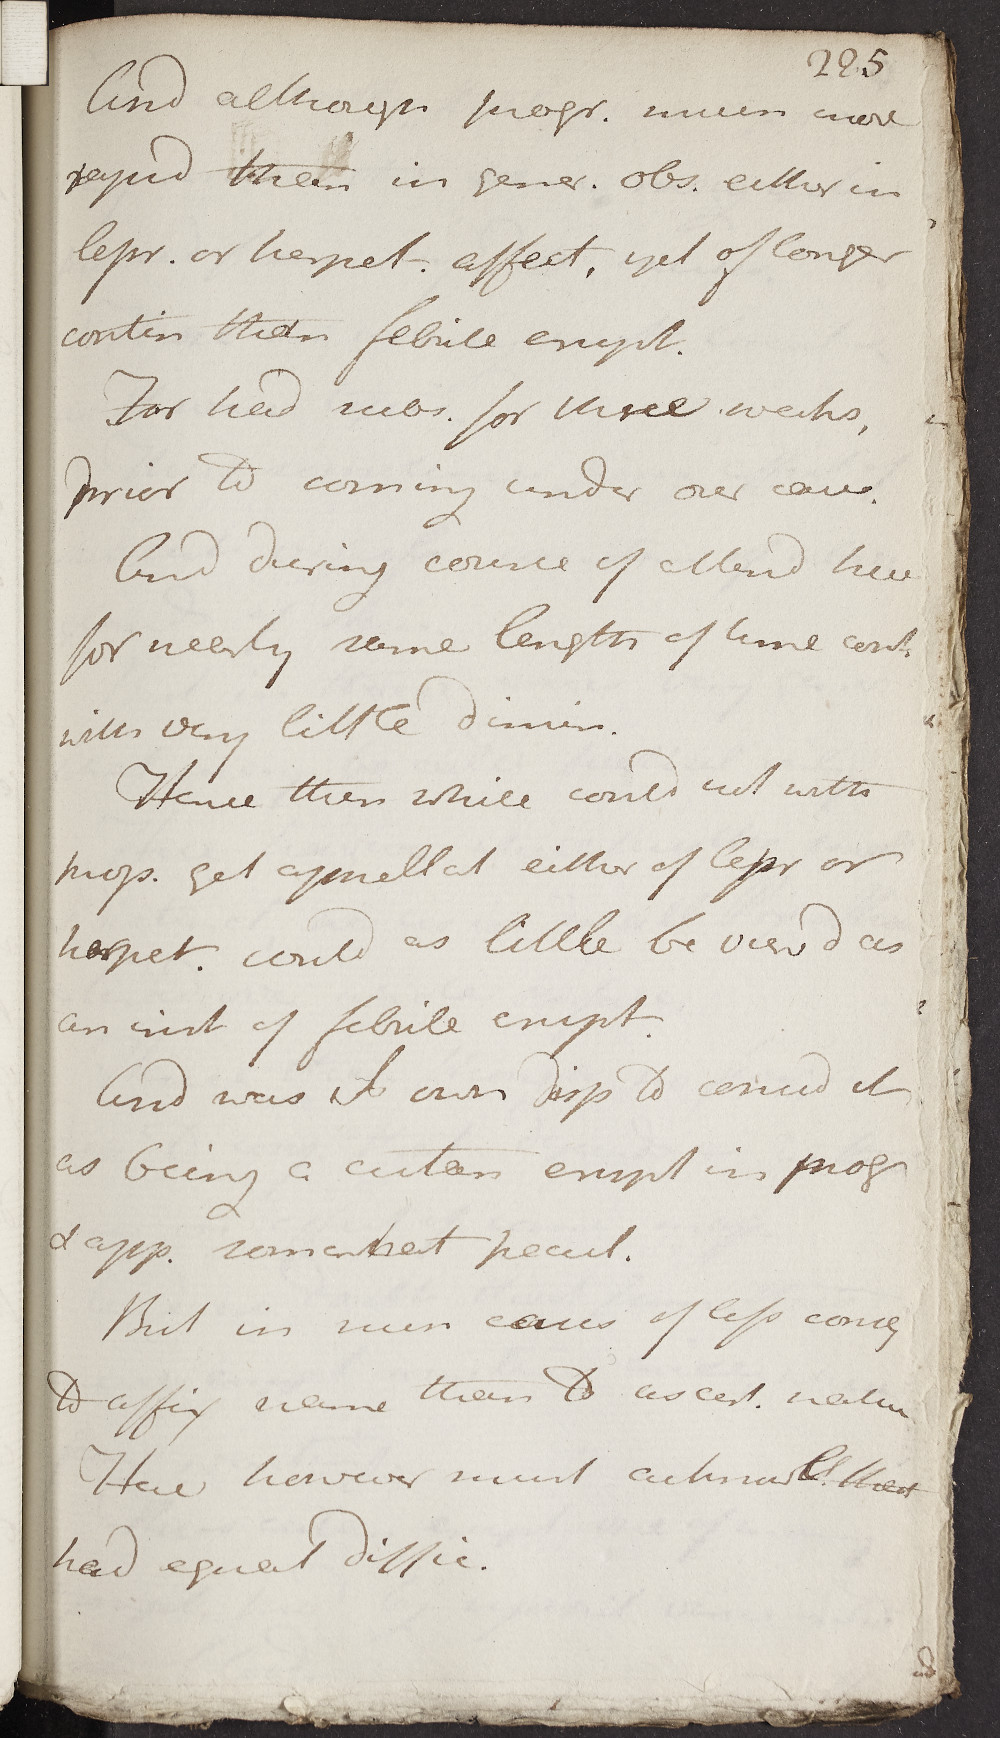 225
And although progr. much more
rapid than in gener. obs. either in
lepr. or herpet. affect, yet of longer
contin than febrile erupt.
For had subs. for three weeks,
prior to coming under our care.
And during course of attend here
for nearly same length of time cont.
with very little dimin.
Hence then while could not with
prop. get appellat either of lepr or
herpet. could as little be view'd as
an inst of febrile erupt.
And was I own disp to consid it
as being a cutan erupt in progr
& app. somewhat pecul.
But in such cases of less conseq
to affix name than to ascert. natur
Here however must acknowl. that
had equal diffic.